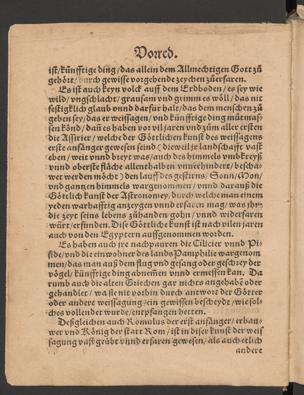 Vorred.
ist/künfftige ding/das allein dem Allmechtigen Gott zů
gehört/durch gewisse vorgehende zeychen zůerfaren.
Es ist auch keyn volck auff dem Erdboden/es sey wie
wild/vngschlacht/grausam vnd grimm es wöll/das nit
festigklich glaub vnnd darfür halt/das dem menschen zů
geben sey/das er weissagen/vnd künfftige ding můtmas-
sen könd/dañ es haben vor vil jaren vnd zům aller ersten
die Assirier/welche der Göttlichen kunst des weissagens
erste anfänger gewesen seind(dieweil jr landschafft vast
eben/weit vnnd breyt was/auch des himmels vmbkreyß
vnd oberste fläche allenthalben vnuerhindert/beschaw-
wet werden möcht)den lauff des gestirns/Sonn/Mon/
vnd gantzen himmels wargenommen/vnnd darauß die
Göttlich kunst der Astronomey/durch welche man einem
yeden warhafftig anzeygen vnnd erfaren mag/was jhm
die zeyt seins lebens zůhanden gohn/vnnd widerfaren
würt/erfunden. Dise Göttliche kunst ist nach vilen jaren
auch von den Egyptern auffgenommen worden.
Es haben auch jre nachpauren die Cilicier vnnd Pi-
side/vnd die einwohner des lands Pamphilie wargenom-
men/das man auß dem flug vnd gesang oder geschrey der
vögel/künfftige ding abnemen vnnd ermessen kan. Da
rumb auch die alten Griechen gar nichts angehabt oder
gehandelt/wa sie nit vorhin durch antwort der Götter
oder andere weissagung/ein gewissen bescheydt/wie sol-
ches vollendet wurde/entpfangen hetten.
Desgleichen auch Romulus der erst anfänger/erbau-
wer vnd König der statt Rom/ist in diser kunst der weis
sagung vast geübt vnnd erfaren gewesen/als auch etlich
andere